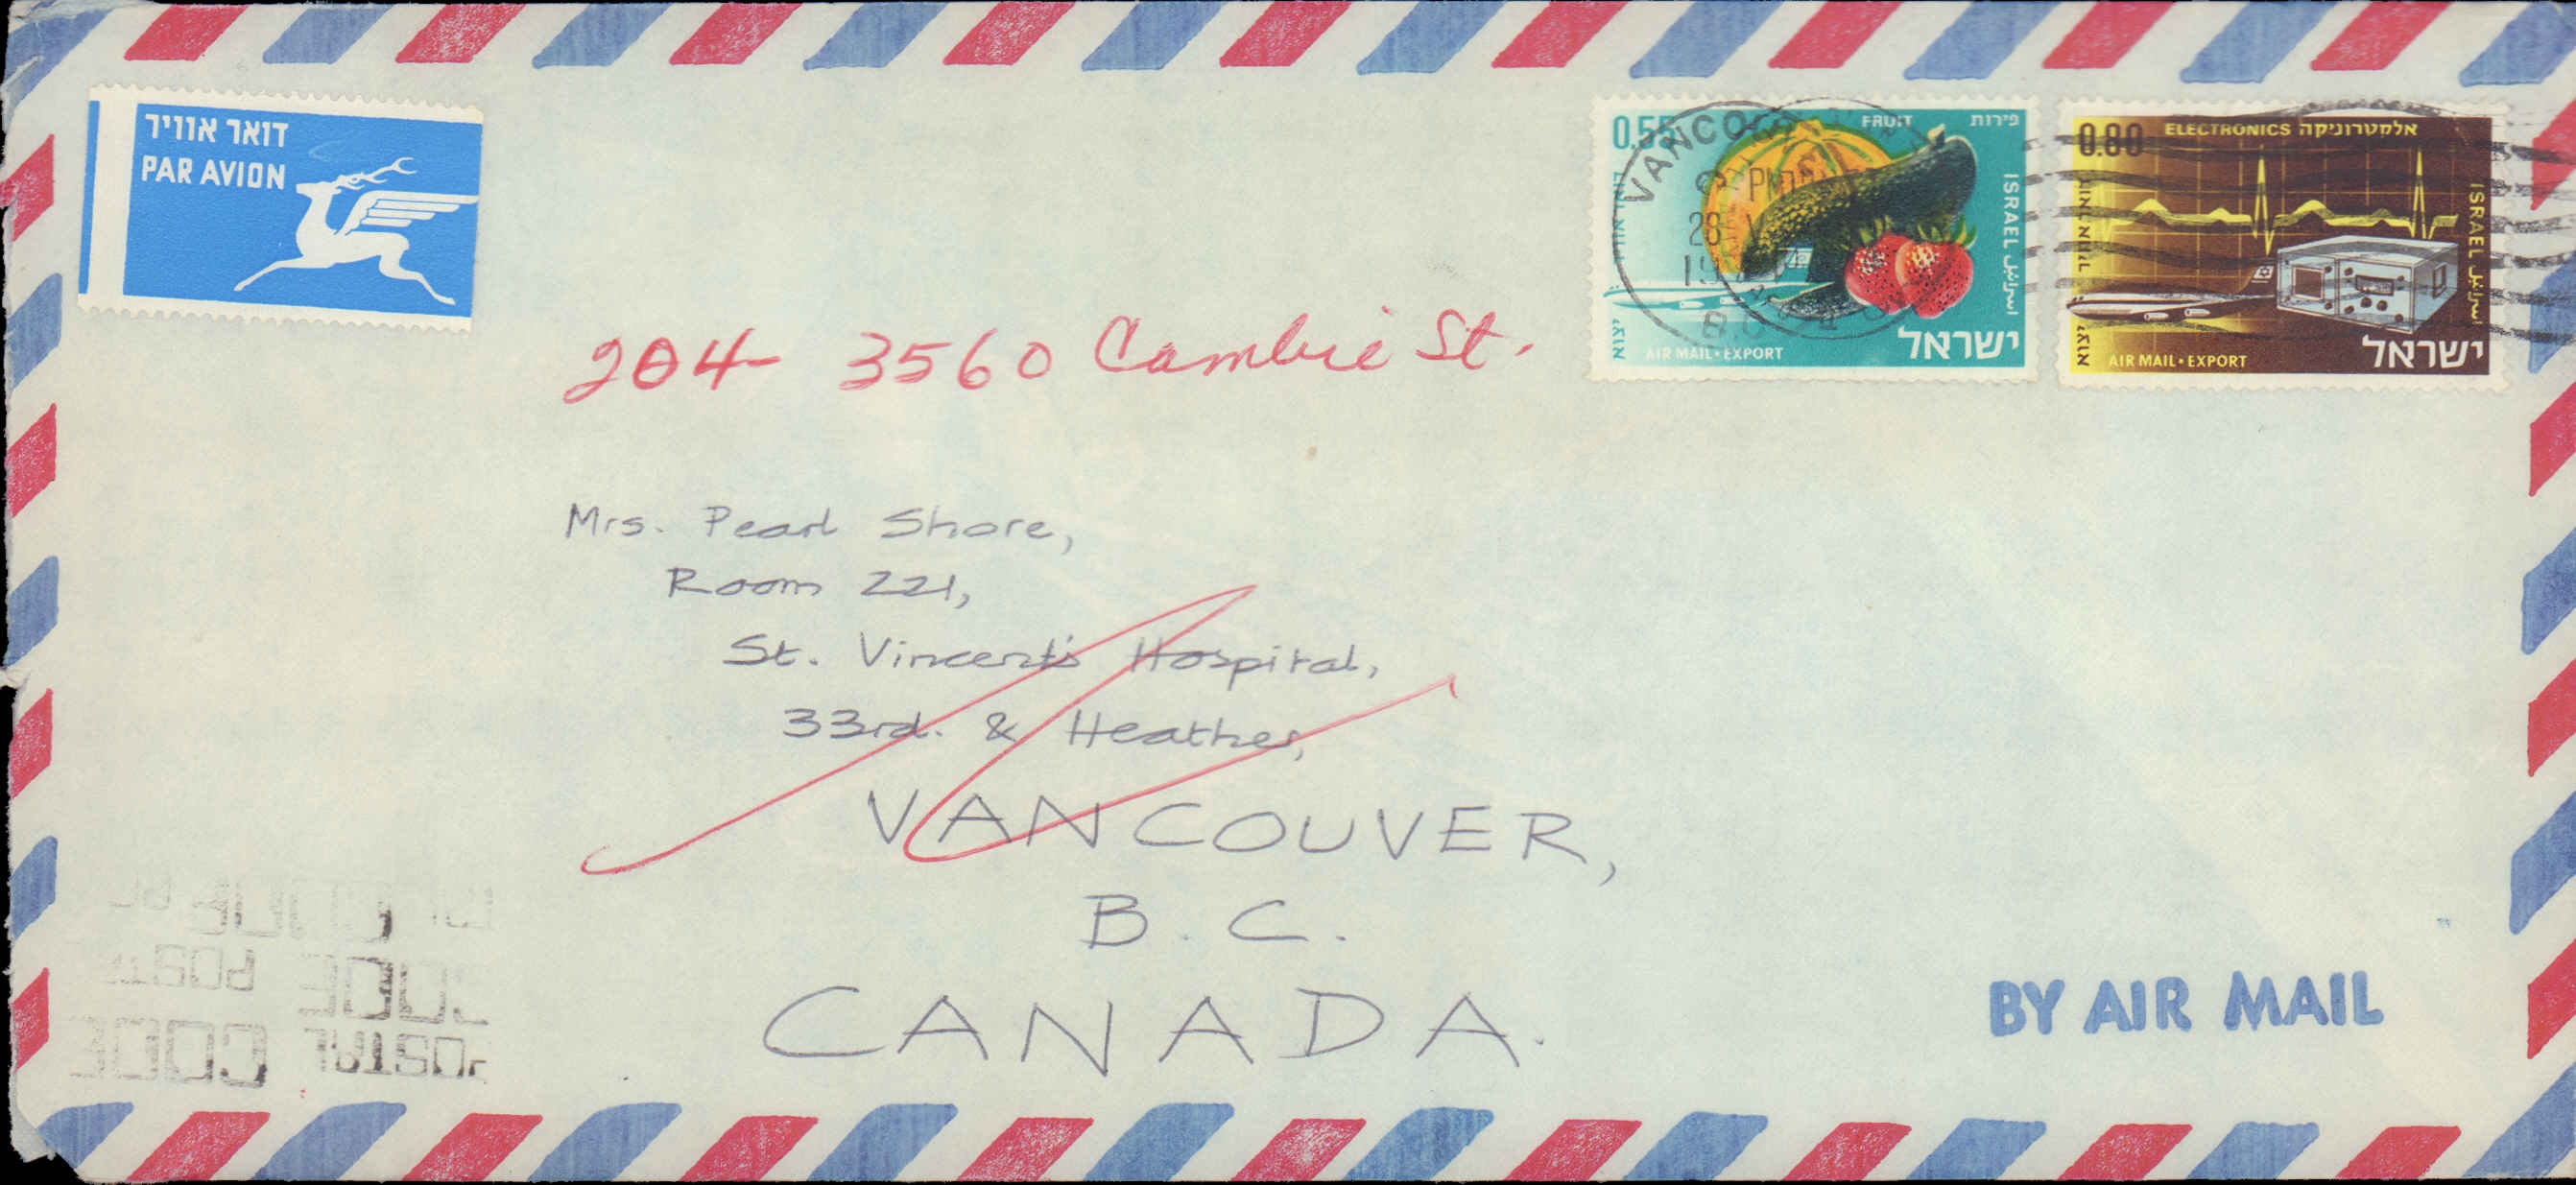 דואר אוויר
PAR AVION
0.55 FRUIT פירות
ISRAEL اسرائيل
AIR MAIL • EXPORT ישראל
0.80 ELECTRONICS אלקטרוניקה
ISRAEL اسرائيل
AIR MAIL • EXPORT ישראל
204- 3560 Cambie St.
Mrs. Pearl Shore,
Room 221,
St. Vincent's Hospital,
33rd. & Heather,
VANCOUVER,
B.C.
CANADA.
BY AIR MAIL
POSTAL
CODE